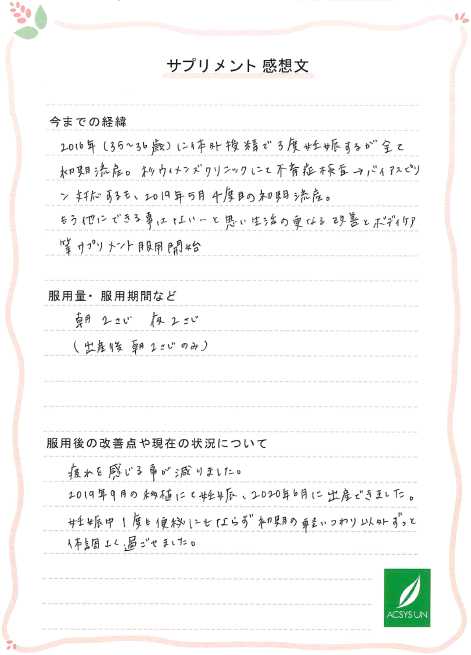 サプリメント 感想文
今までの経緯
2016年(35~36歳)に体外授精で3度妊娠するが全て
初期流産。杉ウィメンズクリニックにて不育症検査→バイアスピリ
ン対応するも、2019年5月4度目の初期流産。
もう他にできる事はないと思い生活の更なる改善とボディケア
等サプリメント服用開始
服用量・服用期間など
朝2さじ 夜2さじ
(出産後 朝2さじのみ)
服用後の改善点や現在の状況について
疲れを感じる事が減りました。
2019年9月の移植にて妊娠、2020年6月に出産できました。
妊娠中1度も便秘にもならず初期の軽いつわり以外ずっと
体調よく過ごせました。
ACSYSUN